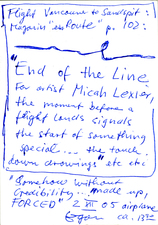 Flight Vancouver to Sandspit:
Magazine "enRoute" p. 102:
"End of the Line
For artist Micah Lexier,
the moment before a
flight lands signals
the start of something
special... the touch
down drawings" etc etc
"Somehow without
credibility.. made up,
FORCED" 2 VII 05 airplane
ca. 13